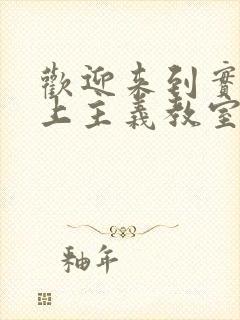 歡迎來到實
上主義教室
釉年